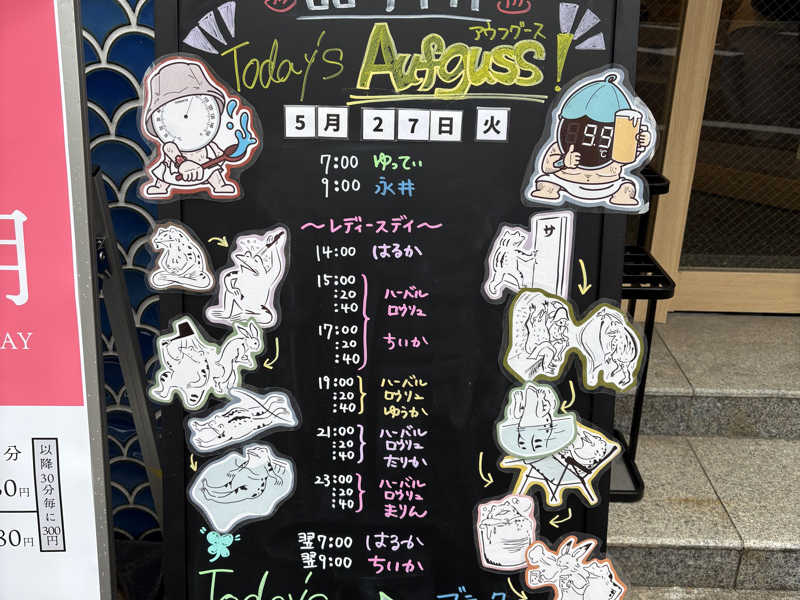 アウフグース
Today's Aufguss!
5月27日火
7:00 ゆってぃ
9:00 永井
～レディースデイ～
14:00 はるか
15:00
:20 ハーバル
:40 ロウリュ
17:00
:20 ちいか
:40
19:00 ハーバル
:20 ロウリュ
:40 ゆうか
21:00 ハーバル
:20 ロウリュ
:40 たりか
23:00 ハーバル
:20 ロウリュ
:40 まりん
翌7:00 はるか
翌9:00 ちいか
Today's
9.9
℃
サ
月
AY
分
0円
80円
以降30分毎に300円